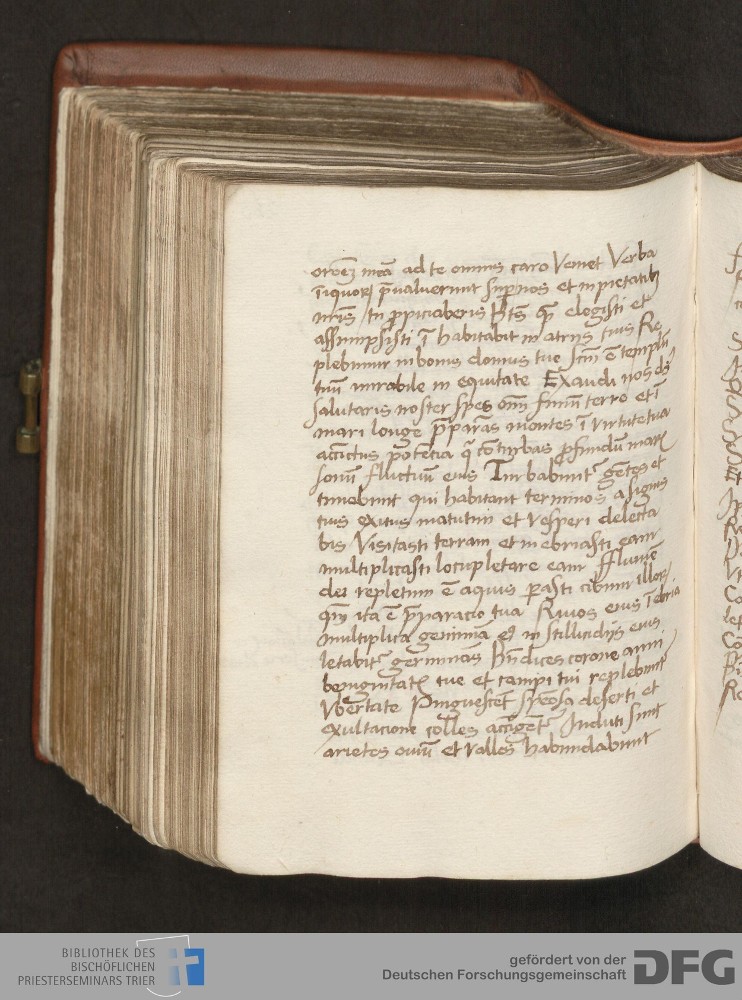 oroēz meā ad te omnis caro Veniet Verba
īiquorꝝ p̄ualuerunt sup nos et impietatibꝫ
nr̄is tu ꝓpiciaberis Bt̄s quē elegisti et
assumpsisti ī habitabit in atrijs tuis Re
plebimur in bonis domus tue Scm̄ ē templū
tuū mirabile in equitate Exaudi nos ds̄
salutaris noster spes om̄ finiū terre et ī
mari longe p̄paras montes ī virtute tua
accīctus potētia q̄ cōturbas ꝓfundū maris
sonū fluctuū eius Turbabunt᷑ gētes et
timebunt qui habitant terminos a signis
tuis exitus matutini et vesperi delecta
bis Visitasti terram et inebriasti eam
multiplicasti locupletare eam Flumē
dei repletum ē aquis parasti cibum illorꝝ
qm̄ ita ē p̄paracio tua Riuos eius īebria
multiplica genimīa eiꝰ in stillicidijs eius
letabit᷑ germinās Bn̄dices corone anni
benignitatis tue et campi tui replebunt᷑
Vbertate Pinguescēt spēosa deserti et
exultacione colles accīgent᷑ Induti sunt
arietes ouiū et valles habundabunt
BIBLIOTHEK DES
BISCHÖFLICHEN
PRIESTERSEMINARS TRIER
gefördert von der
Deutschen Forschungsgemeinschaft
DFG